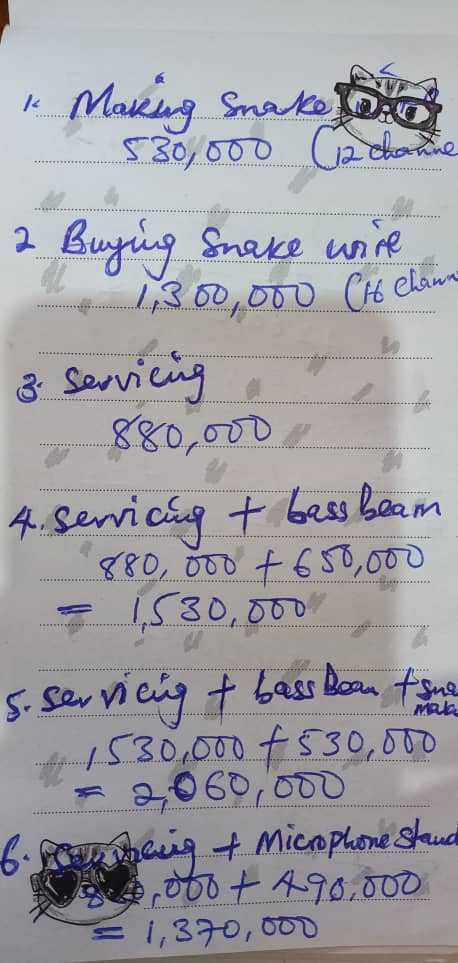 1. Making Snake
530,000 (12 channe
2 Buying Snake wire
1,300,000 (16 chann
3. Servicing
880,000
4. Servicing + bass beam
880,000 + 650,000
= 1,530,000
5. Servicing + bass beam + Sna
mak
1,530,000 + 530,000
= 2,060,000
6. Servicing + Microphone Stand
,000 + 490,000
= 1,370,000